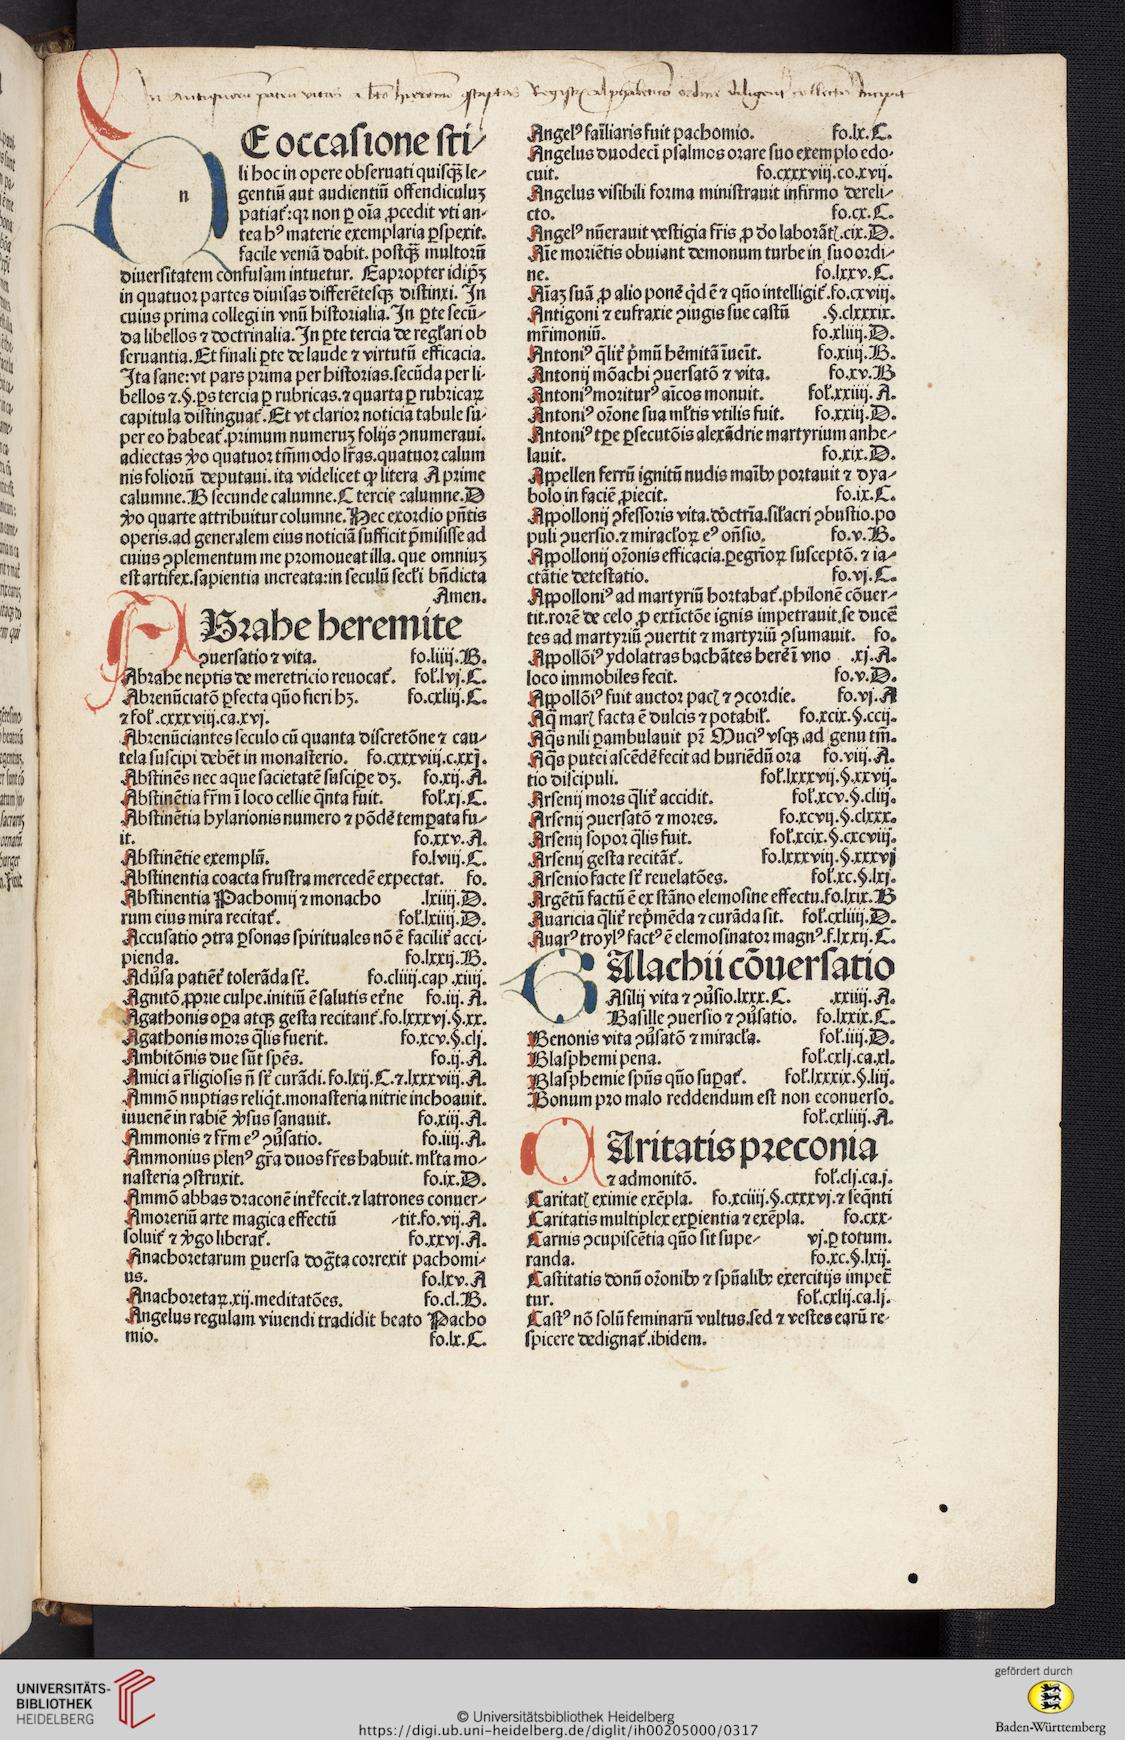 In antiquorum patrum vitas a bto hieronimo 9scriptas Registrum alphabetico ordine diligenter collectum Incipit
n
E occasione sti⸗
li hoc in opere obseruati quisqꝫ le⸗
gentiū aut audientiū offendiculuꝫ
patiat᷑: qꝛ non ꝑ oīa ꝓcedit vti an⸗
tea hꝰ materie exemplaria ꝑspexit.
facile veniā dabit. postqꝫ multorū
diuersitatem confusam intuetur. Eapropter idip̄ꝫ
in quatuor partes diuisas differētesqꝫ distinxi. In
cuius prima collegi in vnū historialia. In ꝑte secū⸗
da libellos ⁊ doctrinalia. In ꝑte tercia de regl̄ari ob
seruantia. Et finali ꝑte de laude ⁊ virtutū efficacia.
Ita sane: vt pars prima per historias. secūda per li⸗
bellos ⁊.§. ꝑs tercia ꝑ rubricas. ⁊ quarta ꝑ rubricaꝝ
capitula distinguat᷑. Et vt clarior noticia tabule su⸗
per eo habeat᷑. primum numeruꝫ folijs ꝯnumeraui.
adiectas ꝟo quatuor tm̄modo lr̄as. quatuor calum
nis foliorū deputaui. ita videlicet ꝙ litera A prime
calumne. B secunde calumne. C tercie calumne. D
ꝟo quarte attribuitur columne. Hec exordio pn̄tis
operis. ad generalem eius noticiā sufficit p̄misisse ad
cuius ꝯplementum me promoueat illa. que omniuꝫ
est artifex. sapientia increata: in seculū secl̄i bn̄dicta
Amen.
ABrahe heremite
ꝯuersatio ⁊ vita. fo.liiij.B.
Abrahe neptis de meretricio reuocat᷑. fol̄.lvj.C.
Abrenūciatō ꝑfecta qūo fieri hꝫ. fo.cxliij.C.
⁊ fol̄.cxxxviij.ca.xvj.
Abrenūciantes seculo cū quanta discretōne ⁊ cau⸗
tela suscipi debēt in monasterio. fo.cxxxviij.c.xxj.
Abstinēs nec aque sacietatē susciꝑe dꝫ. fo.xij.A.
Abstinētia fr̄m ī loco cellie q̄nta fuit. fol̄.xj.C.
Abstinētia hylarionis numero ⁊ pōdē temꝑata fu⸗
it. fo.xxv.A.
Abstinētie exemplū. fo.lviij.C.
Abstinentia coacta frustra mercedē expectat. fo.
Abstinentia Pachomij ⁊ monacho .lxiiij.D.
rum eius mira recitat᷑. fol̄.lxiiij.D.
Accusatio ꝯtra ꝑsonas spirituales nō ē facilit᷑ acci⸗
pienda. fo.lxxij.B.
Adūsa patiēt᷑ tolerāda st᷑. fo.cliiij.cap.xiiij.
Agnitō ꝓprie culpe. initiū ē salutis et᷑ne fo.iij.A.
Agathonis oꝑa atqꝫ gesta recitant᷑.fo.lxxxvj.§.xx.
Agathonis mors q̄lis fuerit. fo.xcv.§.clj.
Ambitōnis due sūt spēs. fo.ij.A.
Amici a r̄ligiosis n̄ st᷑ curādi.fo.lxij.C.⁊.lxxxviij.A.
Ammō nuptias reliq̄t. monasteria nitrie inchoauit.
iuuenē in rabiē ꝟsus sanauit. fo.xiij.A.
Ammonis ⁊ fr̄m eꝰ ꝯūsatio. fo.iiij.A.
Ammonius plenꝰ gr̄a duos fr̄es habuit. ml̄ta mo⸗
nasteria ꝯstruxit. fo.ix.D.
Ammō abbas draconē int᷑fecit. ⁊ latrones conuer⸗
Amoreriū arte magica effectū ⸗tit.fo.vij.A.
soluit ⁊ ꝟgo liberat᷑. fo.xxvj.A.
Anachoretarum ꝑuersa dog̃ta correxit pachomi⸗
us. fo.lxv.A
Anachoretaꝝ.xij.meditatōes. fo.cl.B.
Angelus regulam viuendi tradidit beato Pacho
mio. fo.lx.C.
Angelꝰ fail̄iaris fuit pachomio. fo.lx.C.
Angelus duodecī psalmos orare suo exemplo edo⸗
cuit. fo.cxxxviij.co.xvij.
Angelus visibili forma ministrauit infirmo dereli⸗
cto. fo.cx.C.
Angelꝰ nūerauit vestigia fr̄is ꝓ ꝺo laborāt̄.cix.D.
Aīe moriētis obuiant demonum turbe in suo ordi⸗
ne. fo.lxxv.C.
Aīaꝫ suā ꝓ alio ponē qd̄ ē ⁊ qūo intelligit᷑.fo.cxviij.
Antigoni ⁊ eufraxie ꝯiugis sue castū .§.clxxxix.
mr̄imoniū. fo.xliiij.D.
Antoniꝰ q̄lit᷑ p̄mū hēmitā īueīt. fo.xiiij.B.
Antonij mōachi ꝯuersatō ⁊ vita. fo.xv.B
Antoniꝰ moriturꝰ aīcos monuit. fol̄.xxiiij.A.
Antoniꝰ oꝛone sua ml̄tis vtilis fuit. fo.xxiij.D.
Antoniꝰ tꝑe ꝑsecutōis alexādrie martyrium anhe⸗
lauit. fo.xix.D.
Appellen ferrū ignitū nudis maībꝰ portauit ⁊ dya⸗
bolo in faciē ꝓiecit. fo.ix.C.
Appollonij ꝯfessoris vita. doctrīa. sil̄acri ꝯbustio. po
puli ꝯuersio. ⁊ miracl̄oꝝ eꝰ on̄sio. fo.v.B.
Appollonij oꝛonis efficacia. ꝑegrīoꝝ susceptō. ⁊ ia⸗
ctātie detestatio. fo.vj.C.
Appolloniꝰ ad martyriū hortabat᷑. philonē cōuer⸗
tit. rorē de celo ꝓ extīctōe ignis impetrauit. se ducē
tes ad martyriū ꝯuertit ⁊ martyriū ꝯsumauit. fo.
Appollōiꝰ ydolatras bachātes herē ī vno .xj.A.
loco immobiles fecit. fo.v.D.
Appollōiꝰ fuit auctor pac̄ ⁊ ꝯcordie. fo.vj.A
Aq̄ mar̄ facta ē dulcis ⁊ potabil̄. fo.xcix.§.ccij.
Aq̄s nili ꝑambulauit pr̄ Mucīꝰ vsqꝫ ad genu tm̄.
Aq̄s putei ascēdē fecit ad huriēdū ora fo.viij.A.
tio discipuli. fol̄.lxxxvij.§.xxvij.
Arsenij mors q̄lit᷑ accidit. fol̄.xcv.§.cliij.
Arsenij ꝯuersatō ⁊ mores. fo.xcvij.§.clxxx.
Arsenij sopor q̄lis fuit. fol̄.xcix.§.cxcviij.
Arsenij gesta recitāt᷑. fo.lxxxviij.§.xxxvj
Arsenio facte st᷑ reuelatōes. fol̄.xc.§.lxj.
Argētū factū ē ex stāno elemosine effectu.fo.lxix.B
Auaricia q̄lit᷑ rep̄mēda ⁊ curāda sit. fol̄.cxliiij.D.
Auarꝰ troylꝰ factꝰ ē elemosinator magnꝰ.f.lxxij.C.
BAlachij cōuersatio
Asilij vita ⁊ ꝯūsio.lxxx.C. .xxiiij.A.
Basille ꝯuersio ⁊ ꝯūsatio. fo.lxxix.C.
Benonis vita ꝯūsatō ⁊ miracl̄a. fol̄.iiij.D.
Blasphemi pena. fol̄.cxlj.ca.xl.
Blasphemie spūs qūo suꝑat᷑. fol̄.lxxxix.§.liij.
Bonum pro malo reddendum est non econuerso.
fol̄.cxliiij.A.
CAritatis preconia
⁊ admonitō. fol̄.clj.ca.j.
Caritat̄ eximie exēpla. fo.xciiij.§.cxxxvj.⁊ seq̄nti
Caritatis multiplex exꝑientia ⁊ exēpla. fo.cxx⸗
Carnis ꝯcupiscētia qūo sit supe⸗ vj.ꝑ totum.
randa. fo.xc.§.lxij.
Castitatis donū oꝛonibꝰ ⁊ spūalibꝰ exercitijs impet᷑
tur. fol̄.cxlij.ca.lj.
Castꝰ nō solū feminarū vultus. sed ⁊ vestes earū re⸗
spicere dedignat᷑. ibidem.
UNIVERSITÄTS-
BIBLIOTHEK
HEIDELBERG
© Universitätsbibliothek Heidelberg
https://digi.ub.uni-heidelberg.de/diglit/ih00205000/0317
gefördert durch
Baden-Württemberg